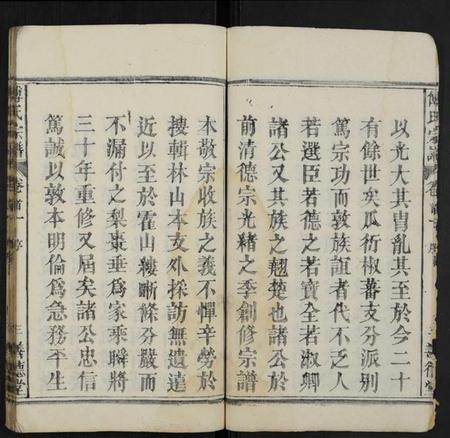 以光大其胄亂其至於今二十
有餘世矣瓜衍椒蕃支分派別
篤宗功而敦族誼者代不乏人
若選臣若德之若寶全若淑卿
諸公又其族之翹楚也諸公於
前清德宗光緒之季創修宗譜
本敬宗收族之義不憚辛勞於
搜輯林山本支外採訪無遺遠
近以至於霍山縷晰條分嚴而
不漏付之梨棗垂為家乘瞬將
三十年重修又屆矣諸公忠信
篤誠以敦本明倫為急務平生
傅氏宗譜 卷首一 序 三 德堂